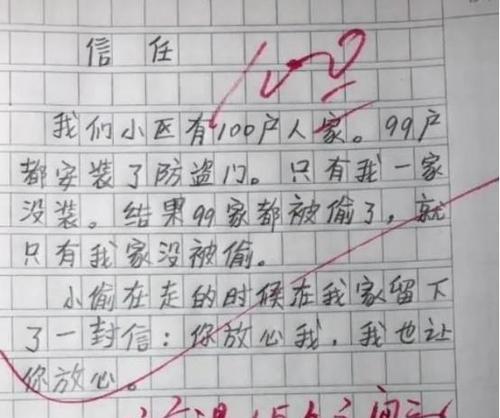 信任
我们小区有100户人家。99户
都安装了防盗门。只有我一家
没装。结果99家都被偷了，就
只有我家没被偷。
小偷在走的时候在我家留下
了一封信：你放心我，我也让
你放心。